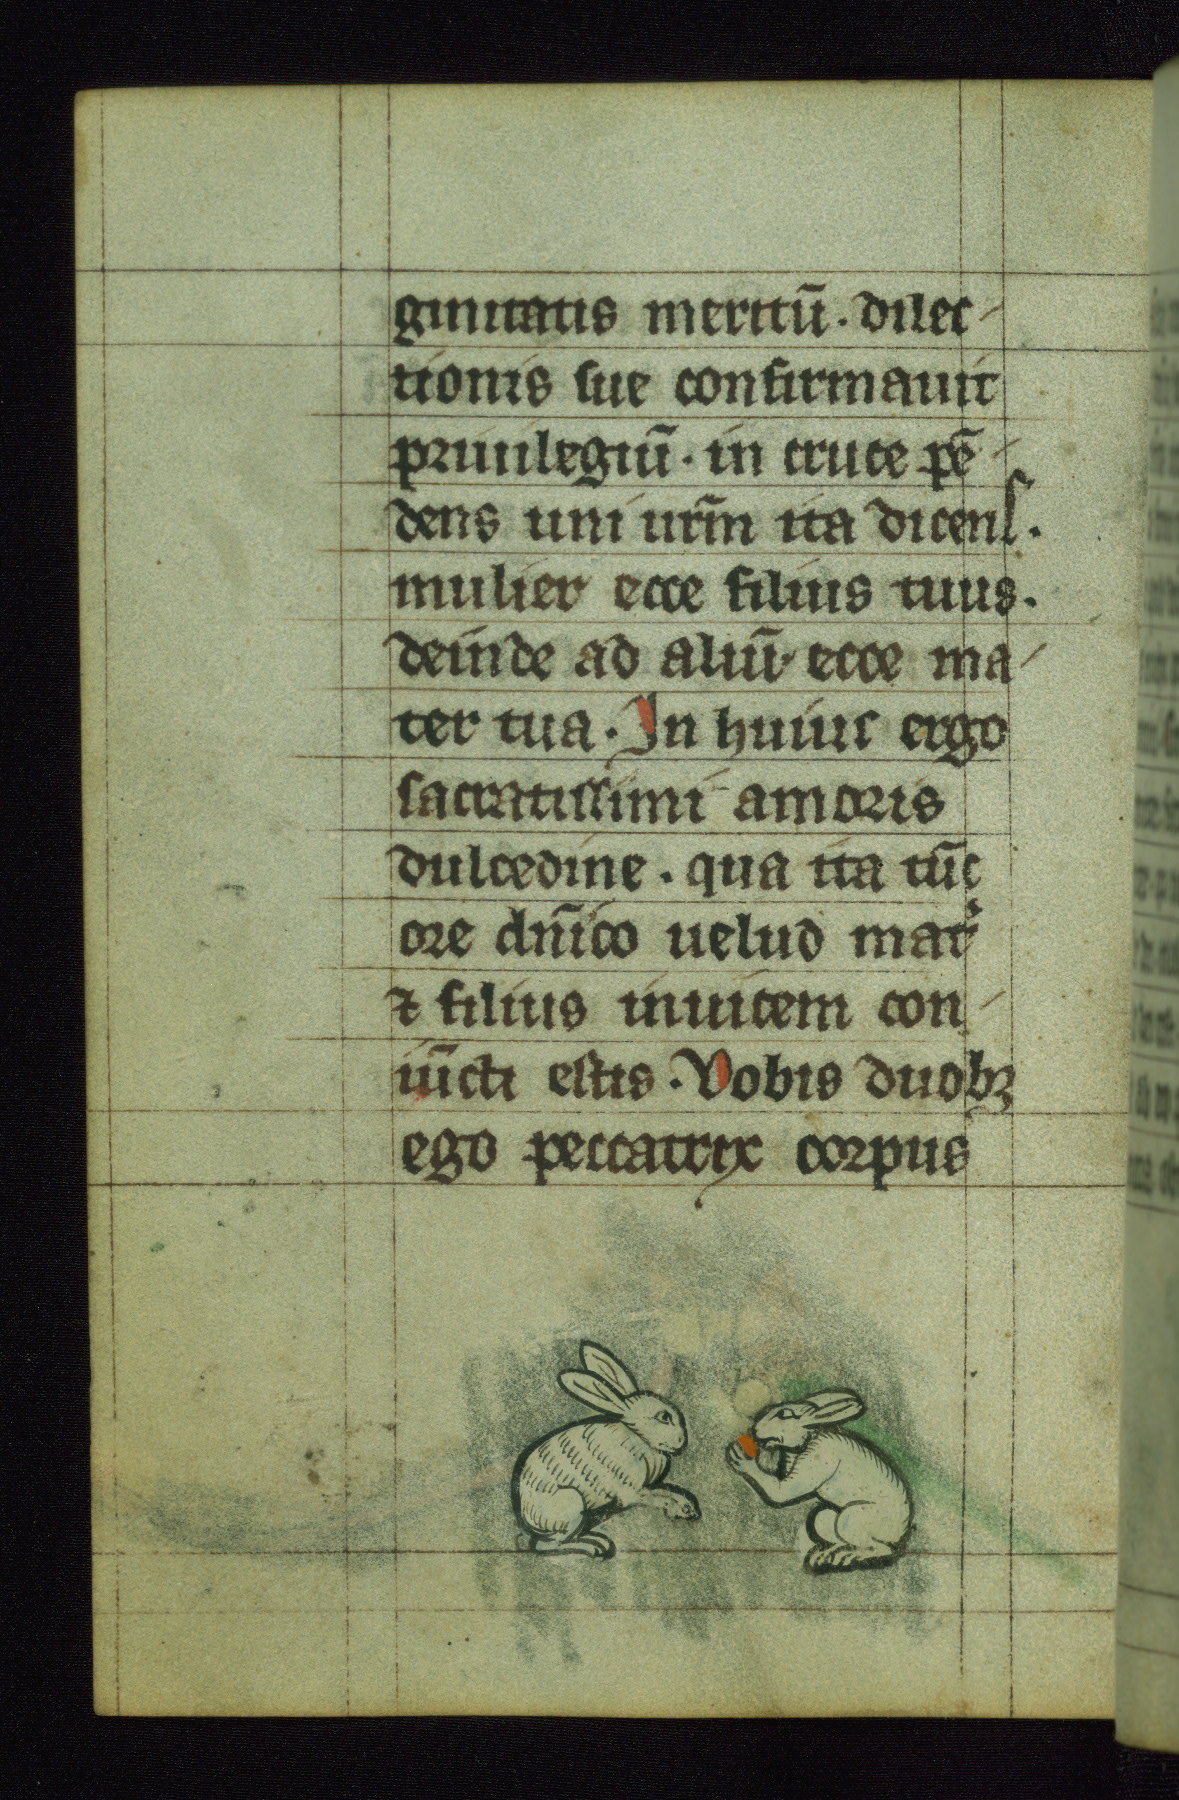 ginitatis meritū. dilec-
tionis sue confirmauit
priuilegiū. in cruce pē-
dens uni urm̄ ita dicens.
mulier ecce filius tuus.
deinde ad aliū. ecce ma-
ter tua. In huius ergo
sacratissimi amoris
dulcedine. qua ita tūc
ore dn̄ico uelud mat͛
⁊ filius inuicem con-
iūcti estis. Vobis duobꝫ
ego peccatrix corpus